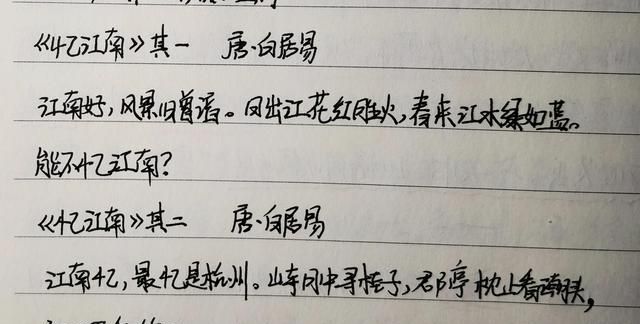 《忆江南》其一 唐·白居易
江南好,风景旧曾谙。日出江花红胜火,春来江水绿如蓝。
能不忆江南?
《忆江南》其二 唐·白居易
江南忆,最忆是杭州。山寺月中寻桂子,郡亭枕上看潮头,